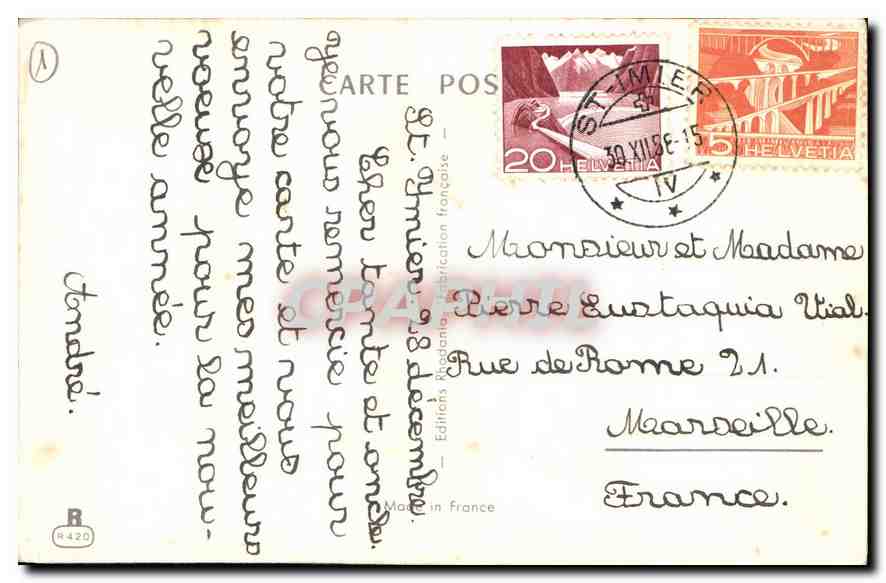 1
CARTE POS
St. Ymier. 28 décembre.
Cher tante et oncle.
Je vous remercie pour
votre carte et vous
envoye mes meilleurs
voeuse pour la nou-
velle année.
André.
20 HELVETIA
5 HELVETIA
ST-IMIER
30.XII.56-15
IV
Monsieur et Madame
Pierre Eustaquia Vial.
Rue de Rome 21.
Marseille.
France.
— Editions Rhodania — Fabrication française —
Made in France
R
R-420
CPAPHIL